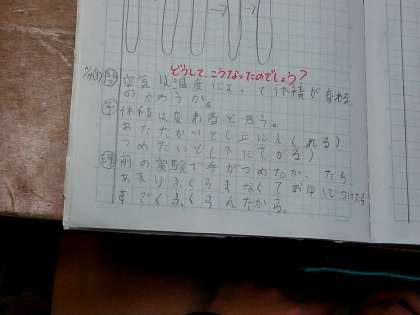 どうして、こうなったのでしょう?
問 空気は温度によって体積が変わる
のだろうか。
予 体積は変わると思う。
あたたかいと上にふくれる)
つめたいと下にさがる)
理 前の実験で手がつめたかったら
あまりふくらまなくておゆにつけたら
すごくふくらんだから。